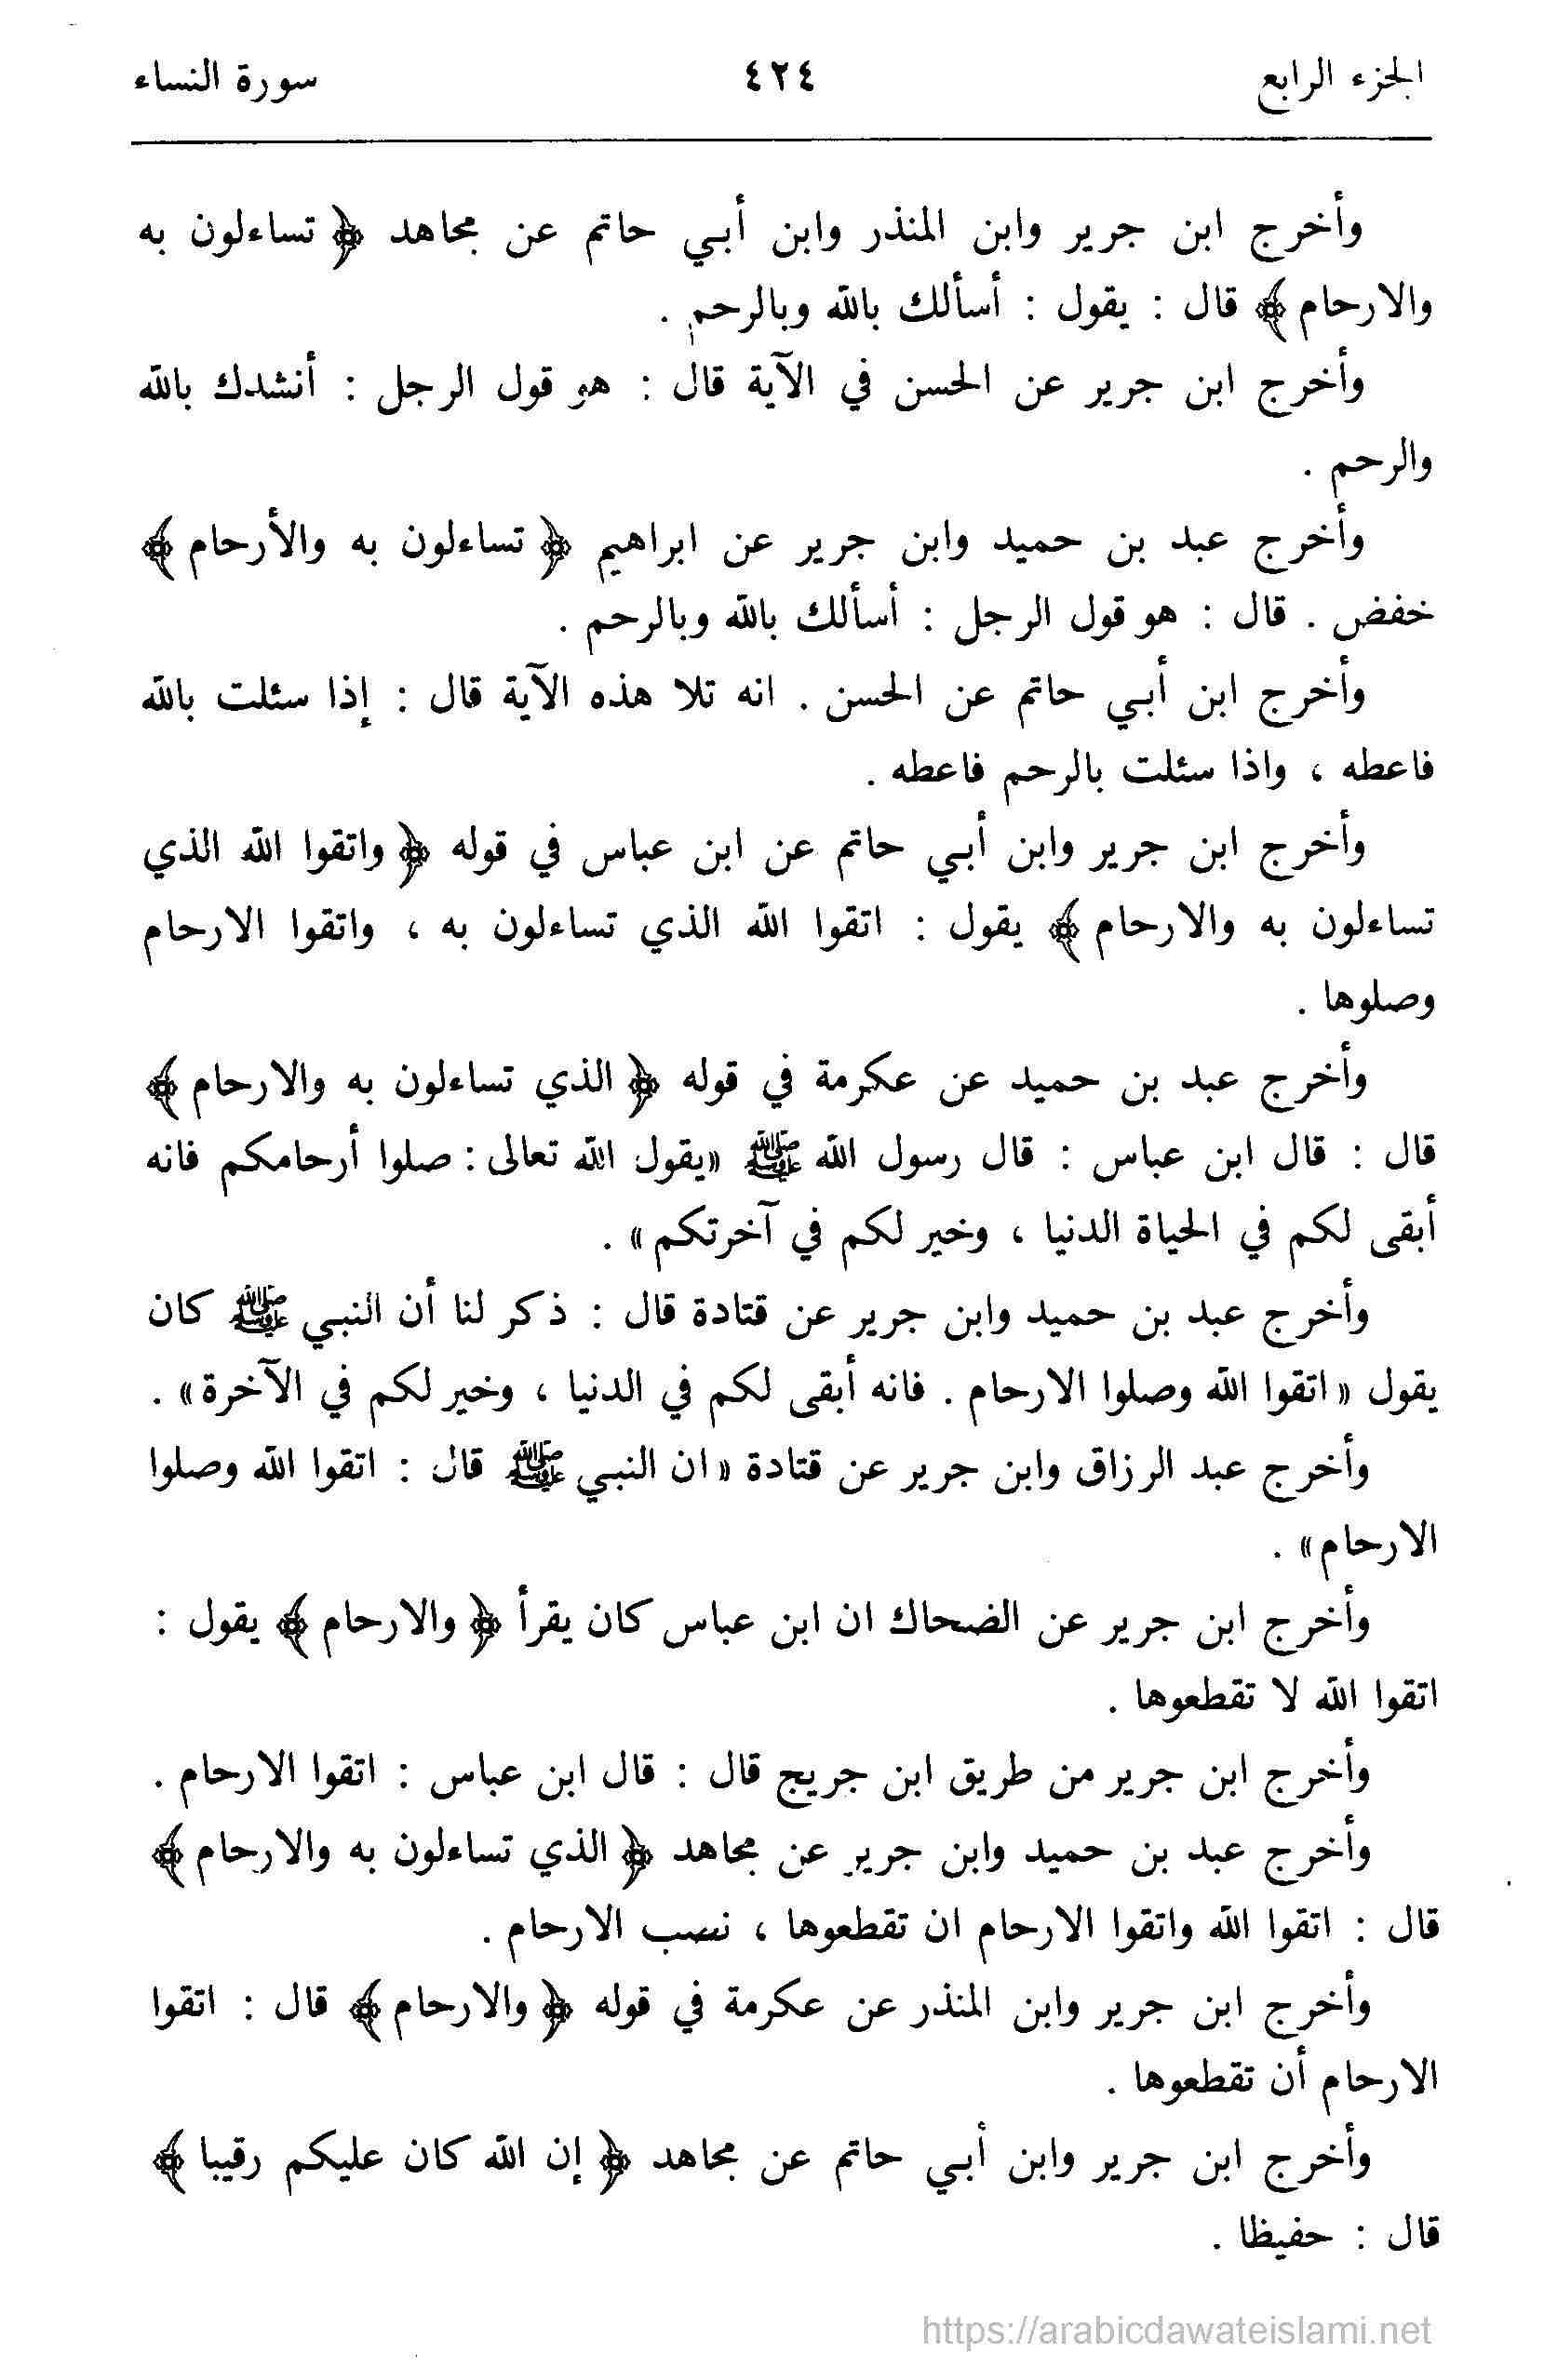 الجزء الرابع ٤٢٤ سورة النساء
وأخرج ابن جرير وابن المنذر وابن أبي حاتم عن مجاهد ﴿ تساءلون به
والارحام ﴾ قال : يقول : أسألك بالله وبالرحم .
وأخرج ابن جرير عن الحسن في الآية قال : هو قول الرجل : أنشدك بالله
والرحم .
وأخرج عبد بن حميد وابن جرير عن ابراهيم ﴿ تساءلون به والأرحام ﴾
خفض . قال : هو قول الرجل : أسألك بالله وبالرحم .
وأخرج ابن أبي حاتم عن الحسن . انه تلا هذه الآية قال : إذا سئلت بالله
فاعطه ، واذا سئلت بالرحم فاعطه .
وأخرج ابن جرير وابن أبي حاتم عن ابن عباس في قوله ﴿ واتقوا الله الذي
تساءلون به والارحام ﴾ يقول : اتقوا الله الذي تساءلون به ، واتقوا الارحام
وصلوها .
وأخرج عبد بن حميد عن عكرمة في قوله ﴿ الذي تساءلون به والارحام ﴾
قال : قال ابن عباس : قال رسول الله ﷺ «يقول الله تعالى : صلوا أرحامكم فانه
أبقى لكم في الحياة الدنيا ، وخير لكم في آخرتكم» .
وأخرج عبد بن حميد وابن جرير عن قتادة قال : ذكر لنا أن النبي ﷺ كان
يقول «اتقوا الله وصلوا الارحام . فانه أبقى لكم في الدنيا ، وخير لكم في الآخرة» .
وأخرج عبد الرزاق وابن جرير عن قتادة «ان النبي ﷺ قال : اتقوا الله وصلوا
الارحام» .
وأخرج ابن جرير عن الضحاك ان ابن عباس كان يقرأ ﴿ والارحام ﴾ يقول :
اتقوا الله لا تقطعوها .
وأخرج ابن جرير من طريق ابن جريج قال : قال ابن عباس : اتقوا الارحام .
وأخرج عبد بن حميد وابن جرير عن مجاهد ﴿ الذي تساءلون به والارحام ﴾
قال : اتقوا الله واتقوا الارحام ان تقطعوها ، نصب الارحام .
وأخرج ابن جرير وابن المنذر عن عكرمة في قوله ﴿ والارحام ﴾ قال : اتقوا
الارحام أن تقطعوها .
وأخرج ابن جرير وابن أبي حاتم عن مجاهد ﴿ إن الله كان عليكم رقيبا ﴾
قال : حفيظا .
https://arabicdawateislami.net